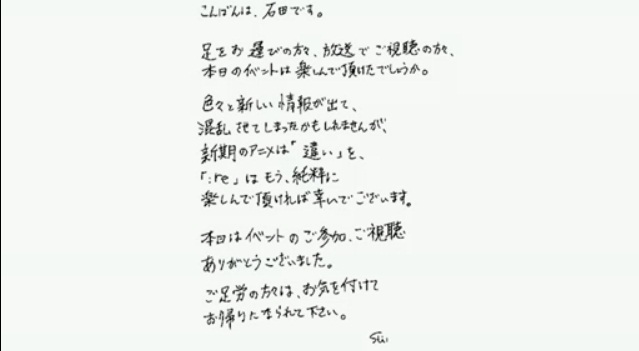 こんばんは、石田です。
足をお運びの方々、放送でご視聴の方々、
本日のイベントは楽しんで頂けたでしょうか。
色々と新しい情報が出て、
混乱させてしまったかもしれませんが、
新期のアニメは「違い」を、
「:re」はもう、純粋に
楽しんで頂ければ幸いでございます。
本日はイベントのご参加、ご視聴
ありがとうございました。
ご足労の方々は、お気を付けて
お帰りになられて下さい。
Sui.